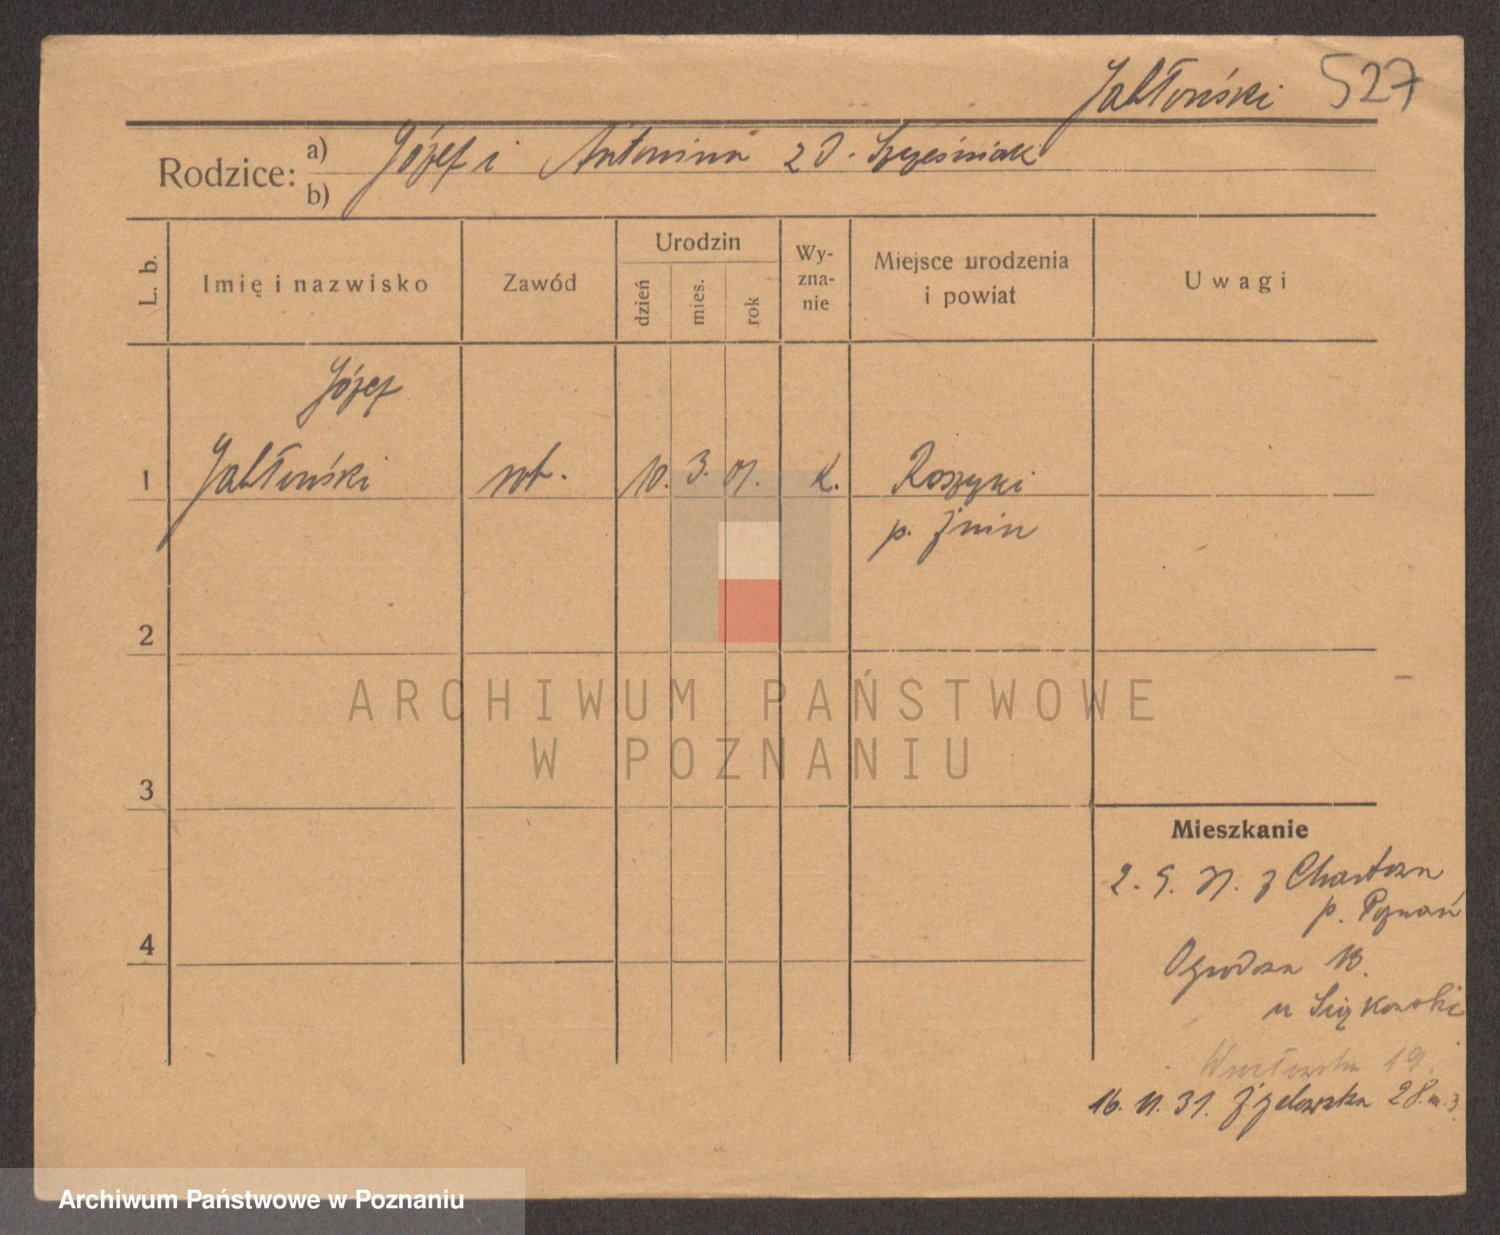 Jabłoński 527
Rodzice: a) Józef i Antonina z d. Szcześniak
b)
L. b.
Imię i nazwisko
Zawód
Urodzin
dzień
mies.
rok
Wy-
zna-
nie
Miejsce urodzenia
i powiat
Uwagi
Józef
1 Jabłoński rob. 10. 3. 01. k.
p. Żnin
2
3
4
ARCHIWUM PAŃSTWOWE
W POZNANIU
Mieszkanie
2. 9. 31. z
p. Poznań
Ogrodowa 18.
u
19.
16. 11. 31. Żydowska 28 m. 3
Archiwum Państwowe w Poznaniu